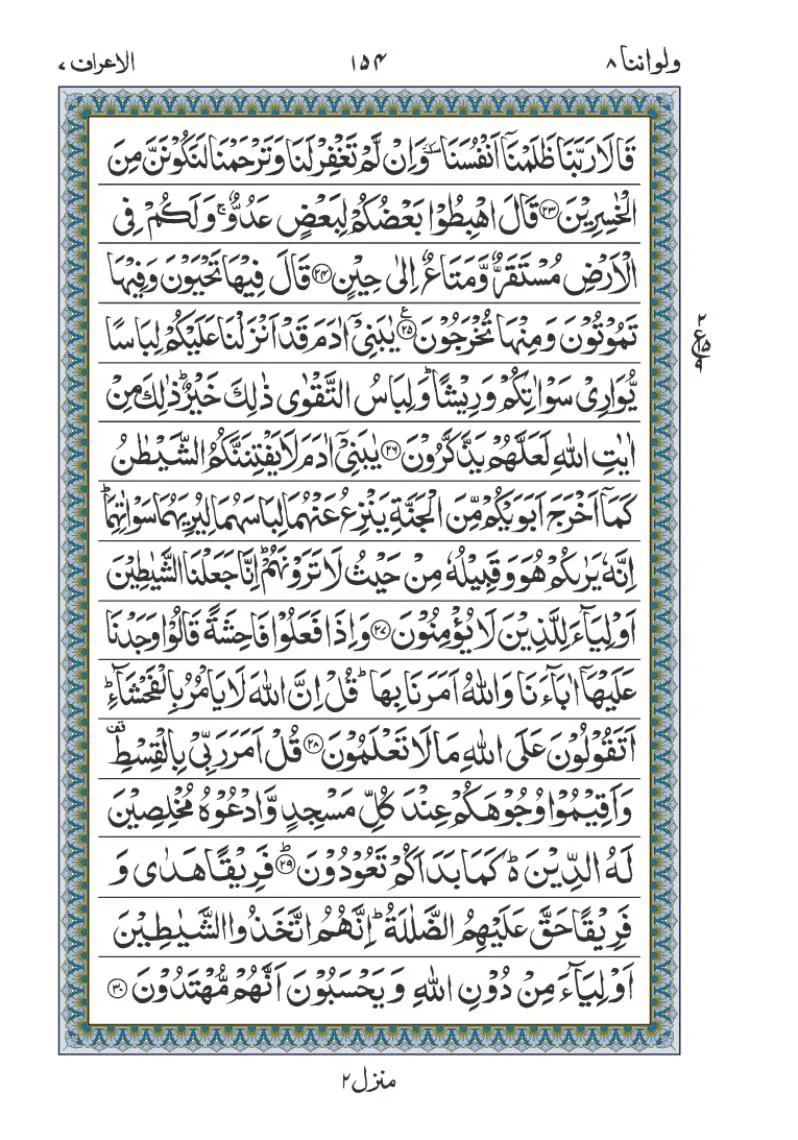 ولواننا ۸ ۱۵۴ الاعراف ۷
قَالَا رَبَّنَا ظَلَمْنَاۤ اَنْفُسَنَا ٚ وَاِنْ لَّمْ تَغْفِرْ لَنَا وَتَرْحَمْنَا لَنَكُوْنَنَّ مِنَ
الْخٰسِرِيْنَ ﴿۲۳﴾ قَالَ اهْبِطُوْا بَعْضُكُمْ لِبَعْضٍ عَدُوٌّ ۚ وَلَكُمْ فِى
الْاَرْضِ مُسْتَقَرٌّ وَّمَتَاعٌ اِلٰى حِيْنٍ ﴿۲۴﴾ قَالَ فِيْهَا تَحْيَوْنَ وَفِيْهَا
تَمُوْتُوْنَ وَمِنْهَا تُخْرَجُوْنَ ﴿۲۵﴾ ع يٰبَنِىْۤ اٰدَمَ قَدْ اَنْزَلْنَا عَلَيْكُمْ لِبَاسًا
۲ ع ۱۵ ۹
يُّوَارِىْ سَوْاٰتِكُمْ وَرِيْشًا ؕ وَلِبَاسُ التَّقْوٰى ذٰلِكَ خَيْرٌ ؕ ذٰلِكَ مِنْ
اٰيٰتِ اللّٰهِ لَعَلَّهُمْ يَذَّكَّرُوْنَ ﴿۲۶﴾ يٰبَنِىْۤ اٰدَمَ لَا يَفْتِنَنَّكُمُ الشَّيْطٰنُ
كَمَاۤ اَخْرَجَ اَبَوَيْكُمْ مِّنَ الْجَنَّةِ يَنْزِعُ عَنْهُمَا لِبَاسَهُمَا لِيُرِيَهُمَا سَوْاٰتِهِمَا ؕ
اِنَّهٗ يَرٰىكُمْ هُوَ وَقَبِيْلُهٗ مِنْ حَيْثُ لَا تَرَوْنَهُمْ ؕ اِنَّا جَعَلْنَا الشَّيٰطِيْنَ
اَوْلِيَآءَ لِلَّذِيْنَ لَا يُؤْمِنُوْنَ ﴿۲۷﴾ وَاِذَا فَعَلُوْا فَاحِشَةً قَالُوْا وَجَدْنَا
عَلَيْهَاۤ اٰبَآءَنَا وَاللّٰهُ اَمَرَنَا بِهَا ؕ قُلْ اِنَّ اللّٰهَ لَا يَاْمُرُ بِالْفَحْشَآءِ ؕ
اَتَقُوْلُوْنَ عَلَى اللّٰهِ مَا لَا تَعْلَمُوْنَ ﴿۲۸﴾ قُلْ اَمَرَ رَبِّىْ بِالْقِسْطِ قف
وَاَقِيْمُوْا وُجُوْهَكُمْ عِنْدَ كُلِّ مَسْجِدٍ وَّادْعُوْهُ مُخْلِصِيْنَ
لَهُ الدِّيْنَ ؕ۬ كَمَا بَدَاَكُمْ تَعُوْدُوْنَ ﴿۲۹﴾ ؕ فَرِيْقًا هَدٰى وَ
فَرِيْقًا حَقَّ عَلَيْهِمُ الضَّلٰلَةُ ؕ اِنَّهُمُ اتَّخَذُوا الشَّيٰطِيْنَ
اَوْلِيَآءَ مِنْ دُوْنِ اللّٰهِ وَيَحْسَبُوْنَ اَنَّهُمْ مُّهْتَدُوْنَ ﴿۳۰﴾
منزل ۲